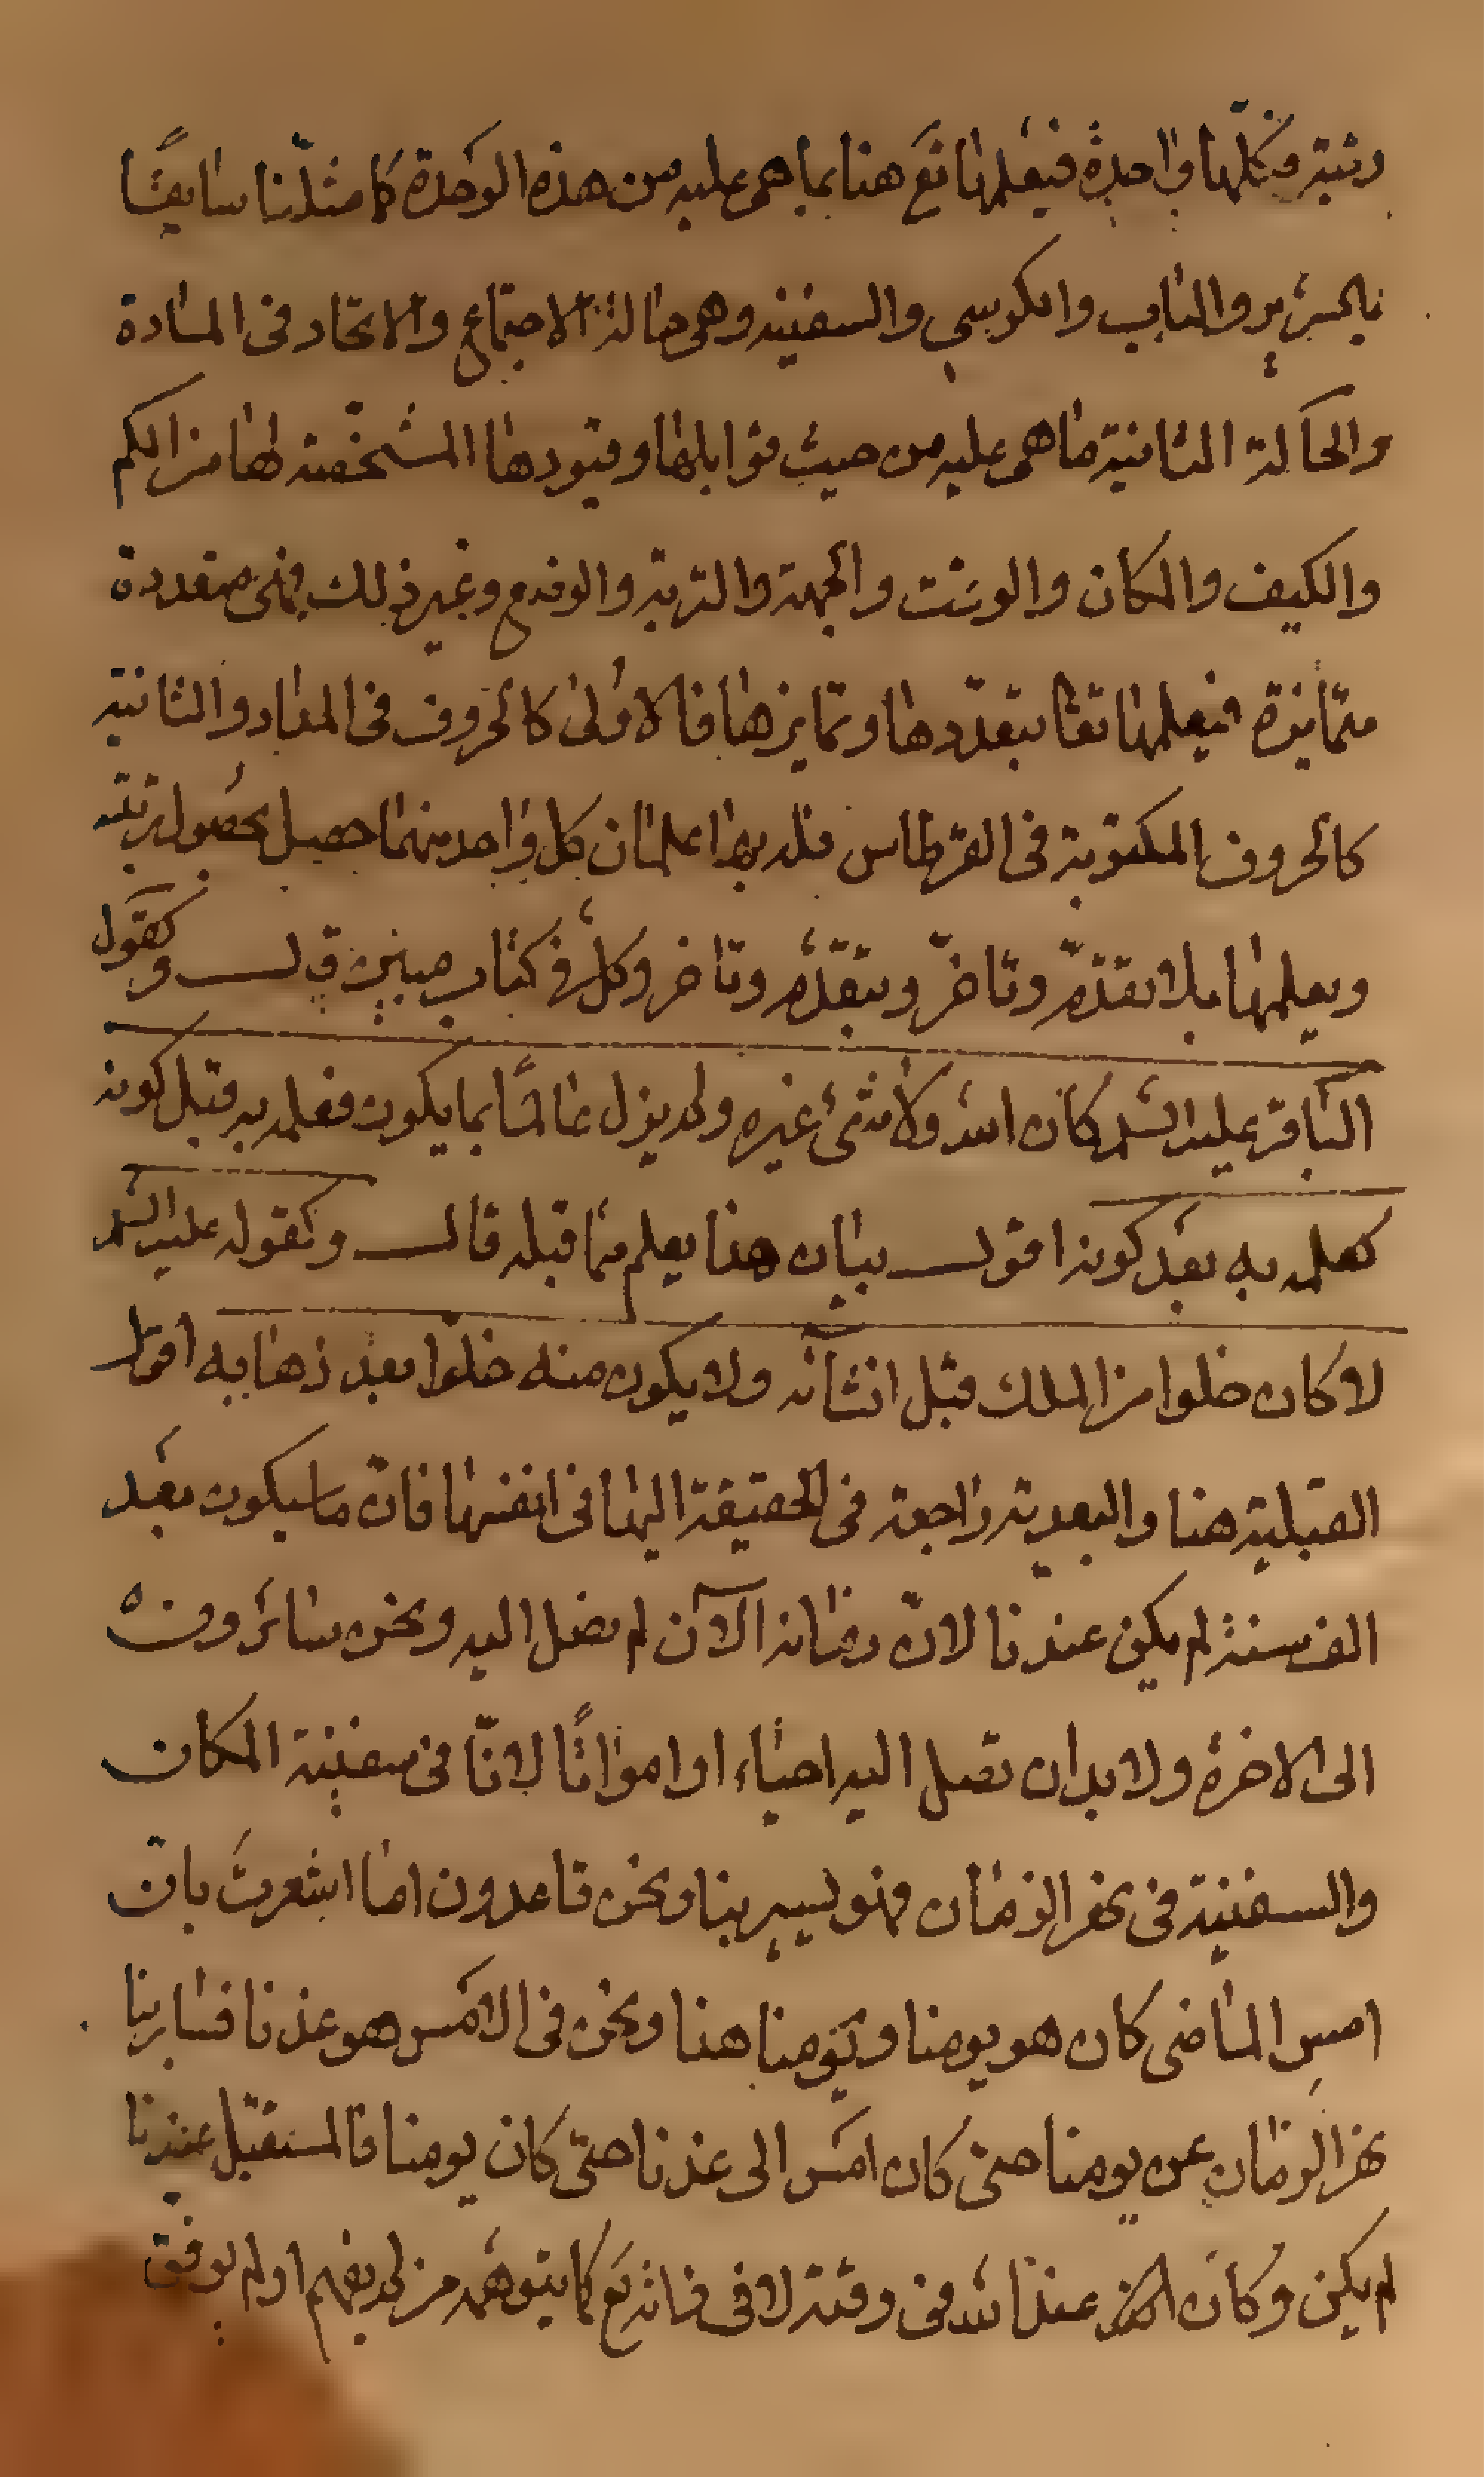 رتبته فكلها واحدة فيعلمها تع هنا بما هى عليه من هذه الوحدة كما مثلنا سابقًا
بالسرير والباب والكرسي والسفينه وهى حالة الاجتماع والاتحاد فى المادة
والحالة الثانية ما هى عليه من حيث قوابلها وقيودها المشخصة لها من الكم
والكيف والمكان والوقت والجهة والرتبة والوضع وغير ذلك فهى متعددة
متمايزة فيعلمها تعا بتعدّدها وتمايزها فالاولى كالحروف فى المداد والثانية
كالحروف المكتوبة فى القرطاس فله بها علمان كل واحد منهما حصل بحصول رتبته
ويعلمها بلا تقدّم وتاخّر وبتقدّم وتاخر وكلٌّ فى كتاب مبين قال وكقول
الباقر عليه السلم كان الله ولا شئ غيره ولم يزل عالمًا بما يكون فعلمه به قبل كونه
كعلمه به بعد كونه اقول بيان هذا يعلم مما قبله قال وكقوله عليه السلم
لا كان خلوا من الملك قبل انشآئه ولا يكون منه خلوا بعد ذهابه اقول
القبلية هنا والبعدية راجعة فى الحقيقة اليها فى انفسها فانّ ما سيكون بعد
الف سنة لم يكن عندنا لانّ زمانه الآن لم نصل اليه ونحن سائرون
الى الاخرة ولا بد ان نصل اليه احياء او امواتًا لانّا فى سفينة المكان
والسفينة فى نهر الزمان فهو يسير بنا ونحن قاعدون اما اشعرت بان
امسِ الماضى كان هو يومنا ويومنا هذا ونحن فى الامس هو غدنا فسار بنا
نهر الزمان عن يومنا حتى كان امس الى غدنا حتّى كان يومنا فالمستقبل عندنا
لم يكن وكان عند الله فى وقته لا فى ذاته تع كما يتوهمه من لم يفهم او لم يوفق